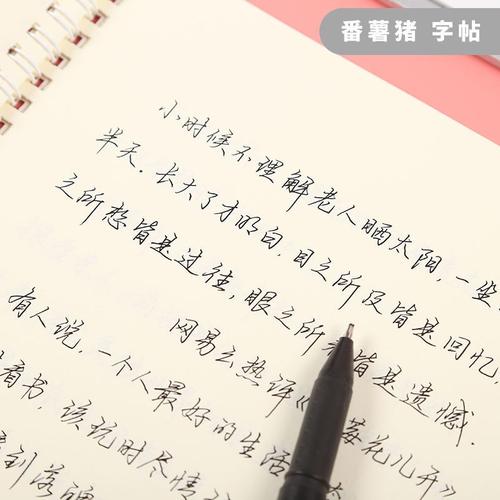 番薯猪 字帖
小时候不理解老人晒太阳,一坐
半天.长大了才明白,目之所及皆是回忆
之所想皆是过往,眼之所 皆是遗憾.
网易云热评《 花儿开》
有人说,一个人最好的生活
看书,该玩时尽情
到落